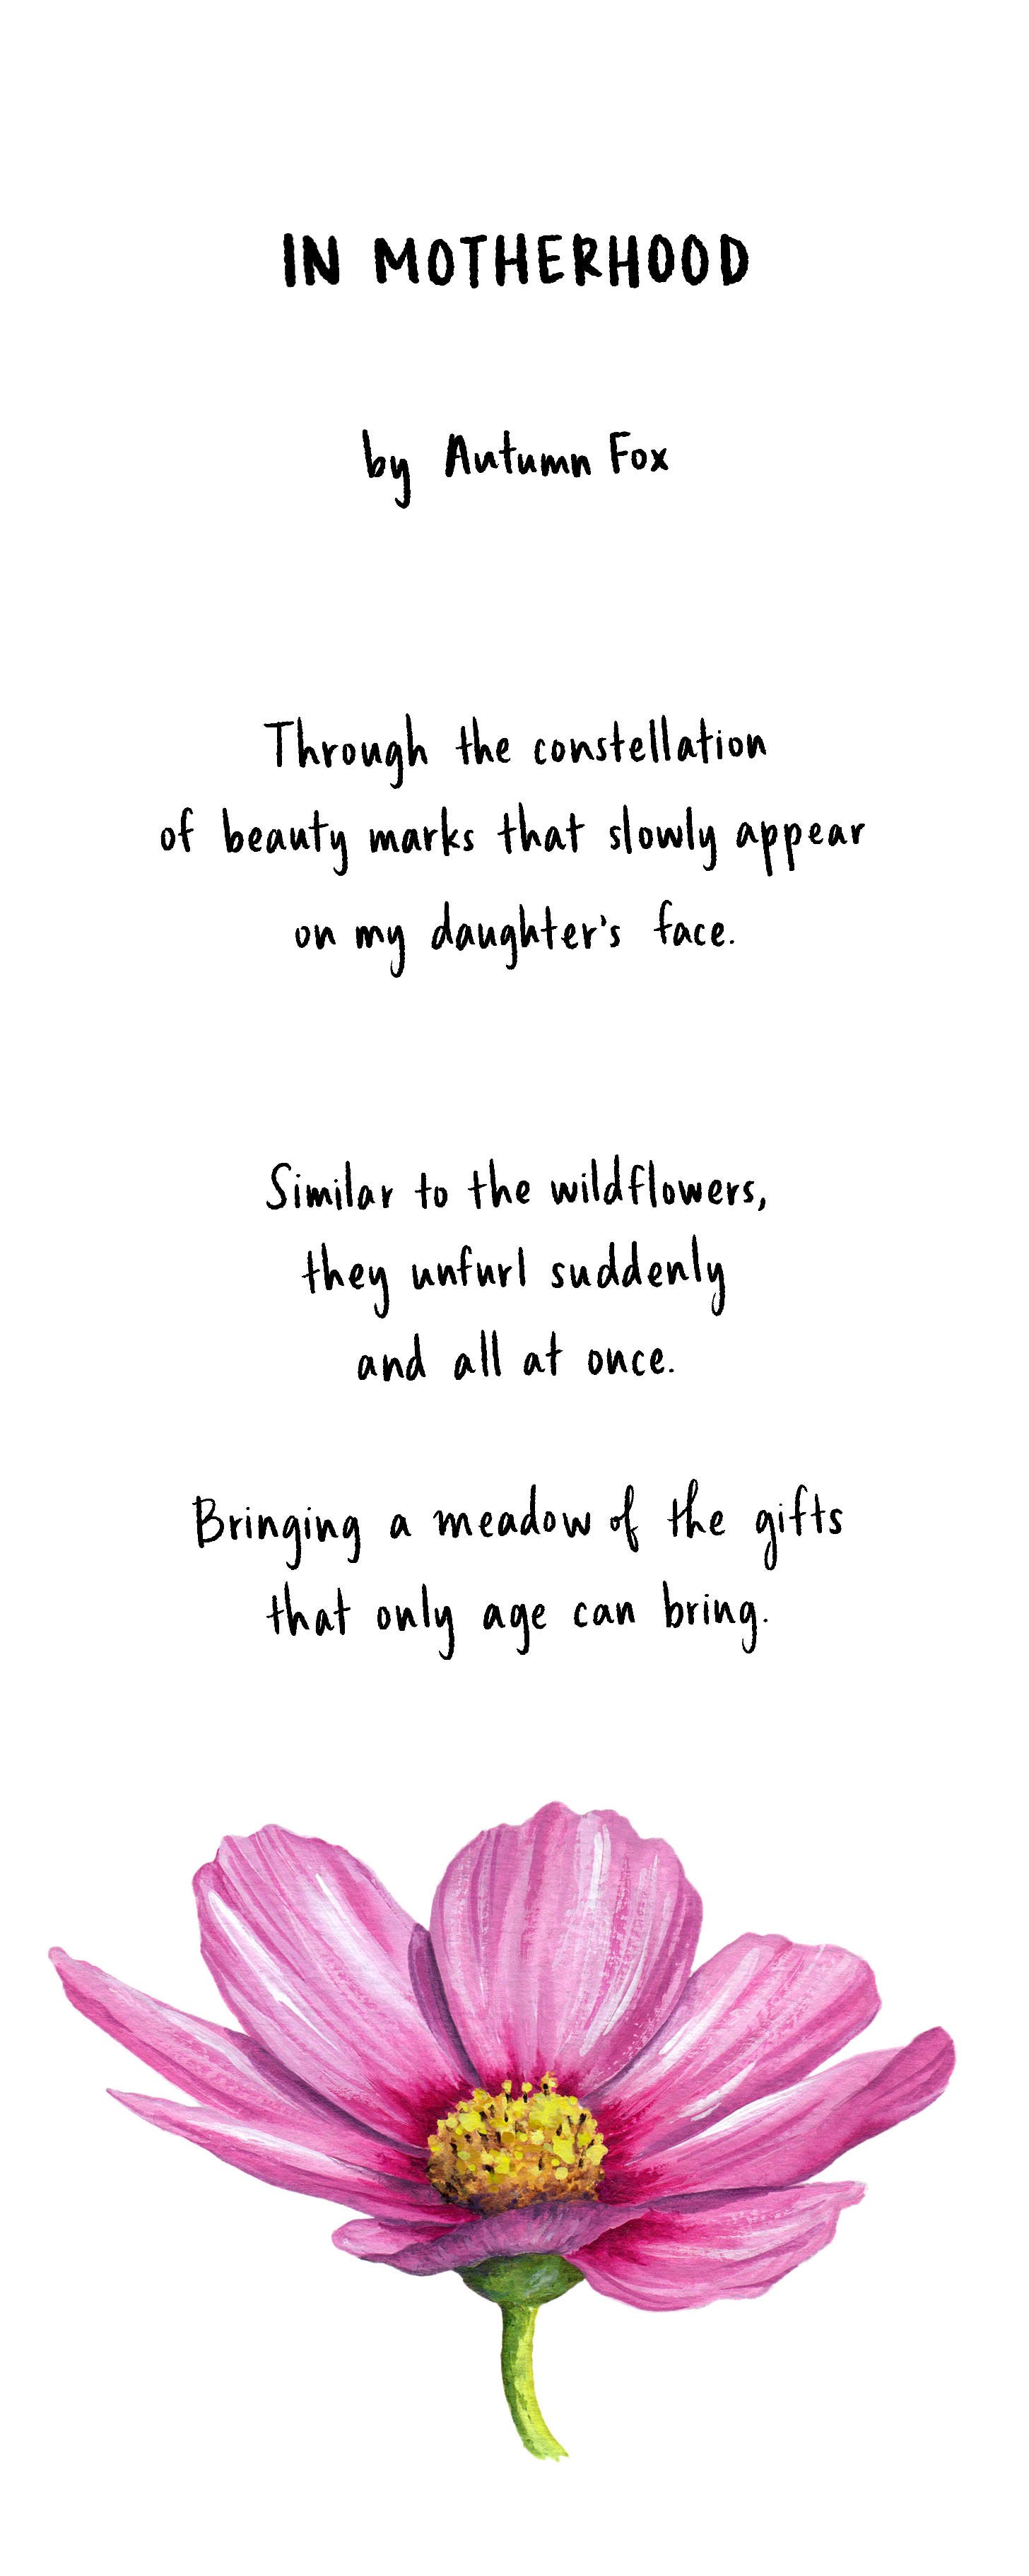 IN MOTHERHOOD
by Autumn Fox
Through the constellation
of beauty marks that slowly appear
on my daughter's face.
Similar to the wildflowers,
they unfurl suddenly
and all at once.
Bringing a meadow of the gifts
that only age can bring.